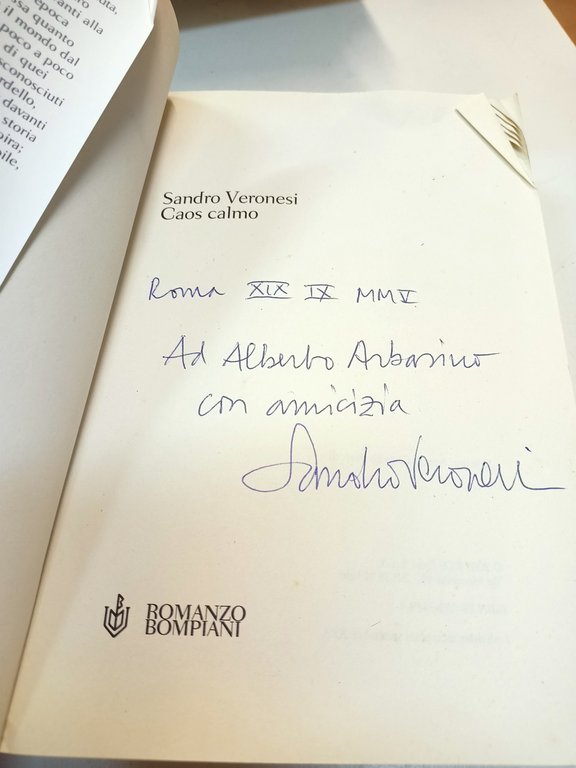 uta,
anti alla
epoca
sa quanto
il mondo dal
poco a poco
di quei
sconosciuti
rdello,
davanti
storia
pira;
bile,
Sandro Veronesi
Caos calmo
Roma XIX IX MMV
Ad Alberto Arbasino
con amicizia
Sandro Veronesi
ROMANZO
BOMPIANI